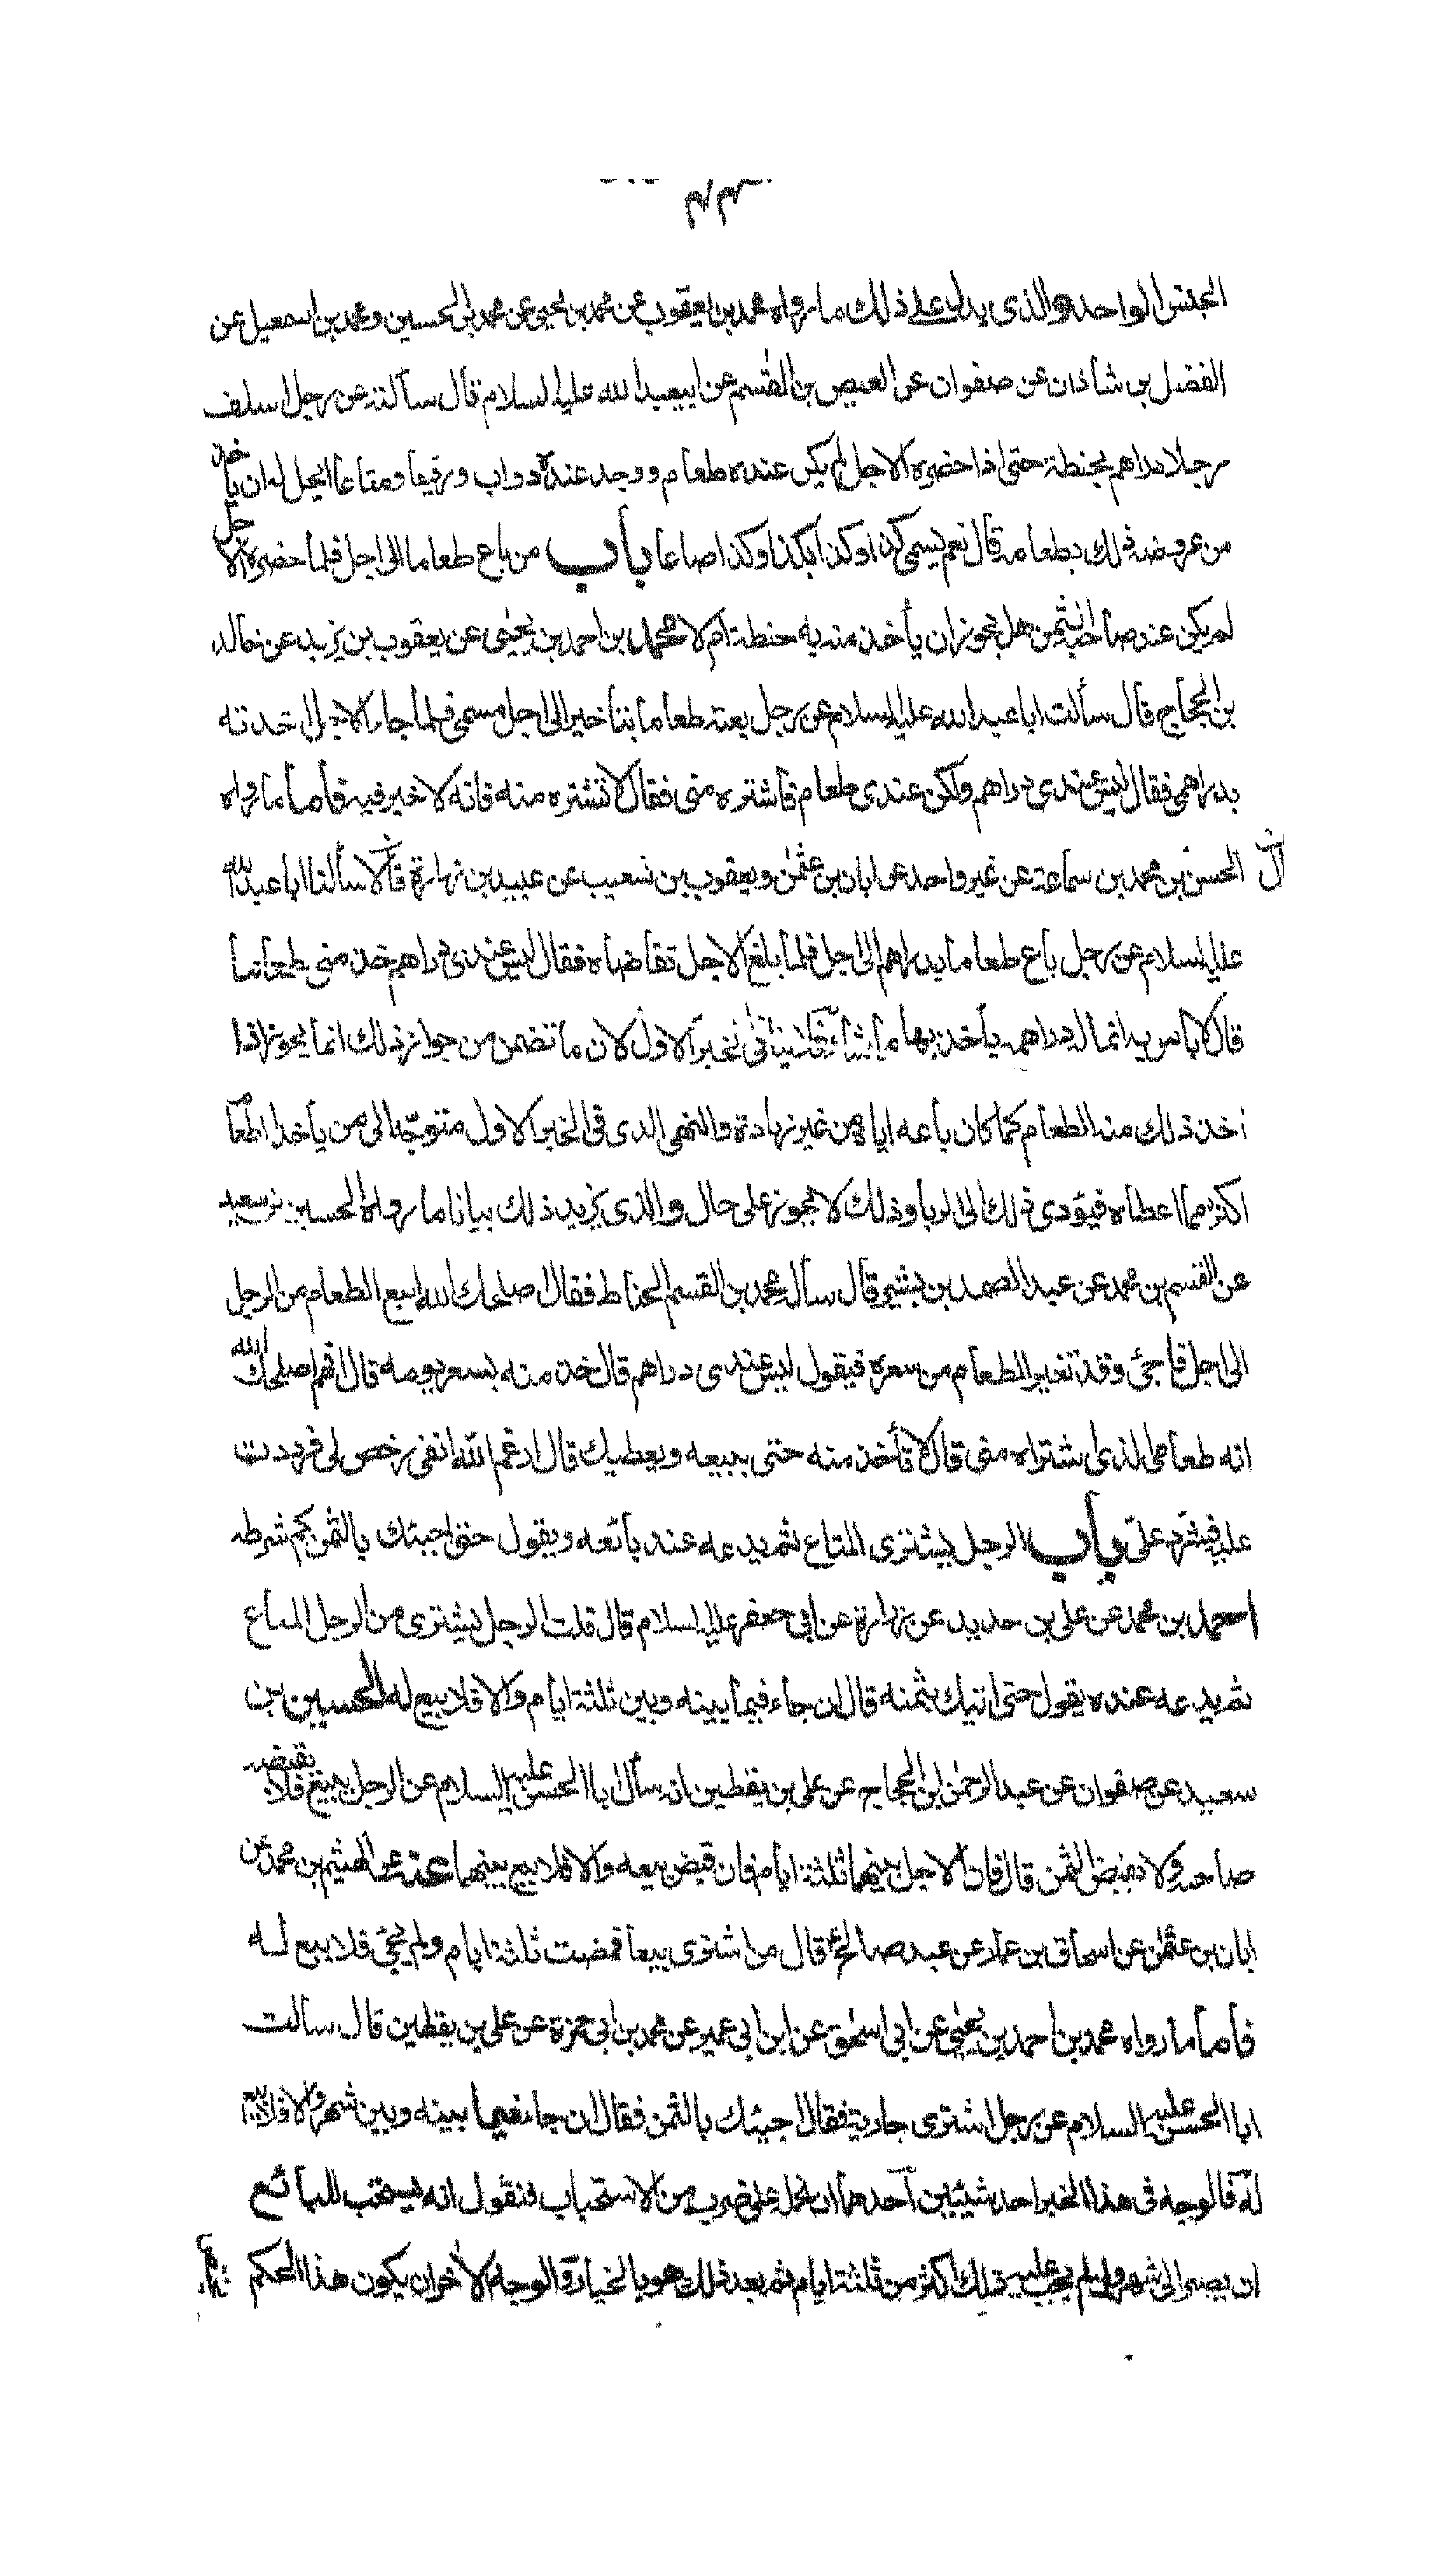 الجنس الواحد والذى يدل على ذلك ما رواه محمد بن يعقوب عن محمد بن يحيى عن محمد بن الحسين ومحمد بن اسمعيل عن
الفضل بن شاذان عن صفوان عن العيص بن القسم عن ابيعبد الله عليه السلام قال سألته عن رجل اسلف
رجلا دراهم بحنطة حتى اذا حضره الاجل لم يكن عنده طعام ووجد عنده دواب ورقيقا ومتاعا ايحل له ان ياخذ
من عروضه ذلك بطعامه قال نعم يسمى كذا وكذا بكذا وكذا صاعا باب من باع طعاما الى اجل فلما حضره الاجل
لم يكن عند صاحبه الثمن هل يجوز ان يأخذ منه به حنطة ام لا محمد بن احمد بن يحيى عن يعقوب بن يزيد عن خالد
بن الحجاج قال سألت ابا عبد الله عليه السلام عن رجل بعته طعاما بتاخير الى اجل مسمى فلما جاء الاجل اخذته
بدراهمى فقال ليس عندى دراهم ولكن عندى طعام فاشتره منى فقال لا تشتره منه فانه لا خير فيه فأما ما رواه
الحسن بن محمد بن سماعة عن غير واحد عن ابان بن عثمن ويعقوب بن شعيب عن عبيد بن زرارة قالا سألنا ابا عبد الله
عليه السلام عن رجل باع طعاما بدراهم الى اجل فلما بلغ الاجل تقاضاه فقال ليس عندى دراهم خذ منى طعاما
قال لا باس به انما له دراهمه يأخذ بها ما شاء فلا ينافى الخبر الاول لان ما تضمن من جواز ذلك انما يجوز اذا
اخذ ذلك منه الطعام كما كان باعه اياه من غير زيادة والنهى الذى فى الخبر الاول متوجه الى من يأخذ اطعاما
اكثر مما اعطاه فيؤدى ذلك الى الربا وذلك لا يجوز على حال والذى يزيد ذلك بيانا ما رواه الحسين بن سعيد
عن القسم بن محمد عن عبد الصمد بن بشير قال سأل محمد بن القسم الحناط فقال اصلحك الله ابيع الطعام من الرجل
الى اجل فاجئ وقد تغير الطعام من سعره فيقول ليس عندى دراهم قال خذ منه بسعر يومه قال افهم اصلحك الله
انه طعامى الذى اشتراه منى قال لا تأخذ منه حتى يبيعه ويعطيك قال ارغم الله انفى رخص لى فرددت
عليه فشدد علىّ باب الرجل يشترى المتاع ثم يدعه عند بائعه ويقول حتى اجيئك بالثمن كم شرطه
احمد بن محمد عن على بن حديد عن زرارة عن ابى جعفر عليه السلام قال قلت الرجل يشترى من الرجل المتاع
ثم يدعه عنده يقول حتى اتيك بثمنه قال ان جاء فيما بينه وبين ثلثة ايام والا فلا بيع له الحسين بن
سعيد عن صفوان عن عبد الرحمن ابن الحجاج عن على بن يقطين انه سأل ابا الحسن عليه السلام عن الرجل يبيع فلا يقبضه
صاحبه ولا يقبض الثمن قال فان الاجل بينهما ثلثة ايام فان قبض بيعه والا فلا بيع بينهما عنه عن الهيثم بن محمد عن
ابان بن عثمن عن اسحاق بن عمار عن عبد صالح ع قال من اشترى بيعا فمضت ثلثة ايام ولم يجئ فلا بيع له
فأما ما رواه محمد بن احمد بن يحيى عن ابى اسحق عن ابن ابى عمير عن محمد بن ابى حمزة عن على بن يقطين قال سألت
ابا الحسن عليه السلام عن رجل اشترى جارية فقال اجيئك بالثمن فقال ان جاء فيما بينه وبين شهر والا فلا بيع
له فالوجه فى هذا الخبر احد شيئين احدهما ان نحمله على ضرب من الاستحباب فنقول انه يستحب للبائع
ان يصبر الى شهر وان لم يجب عليه ذلك اكثر من ثلثة ايام ثم بعد ذلك هو بالخيار والوجه الاخر ان يكون هذا الحكم